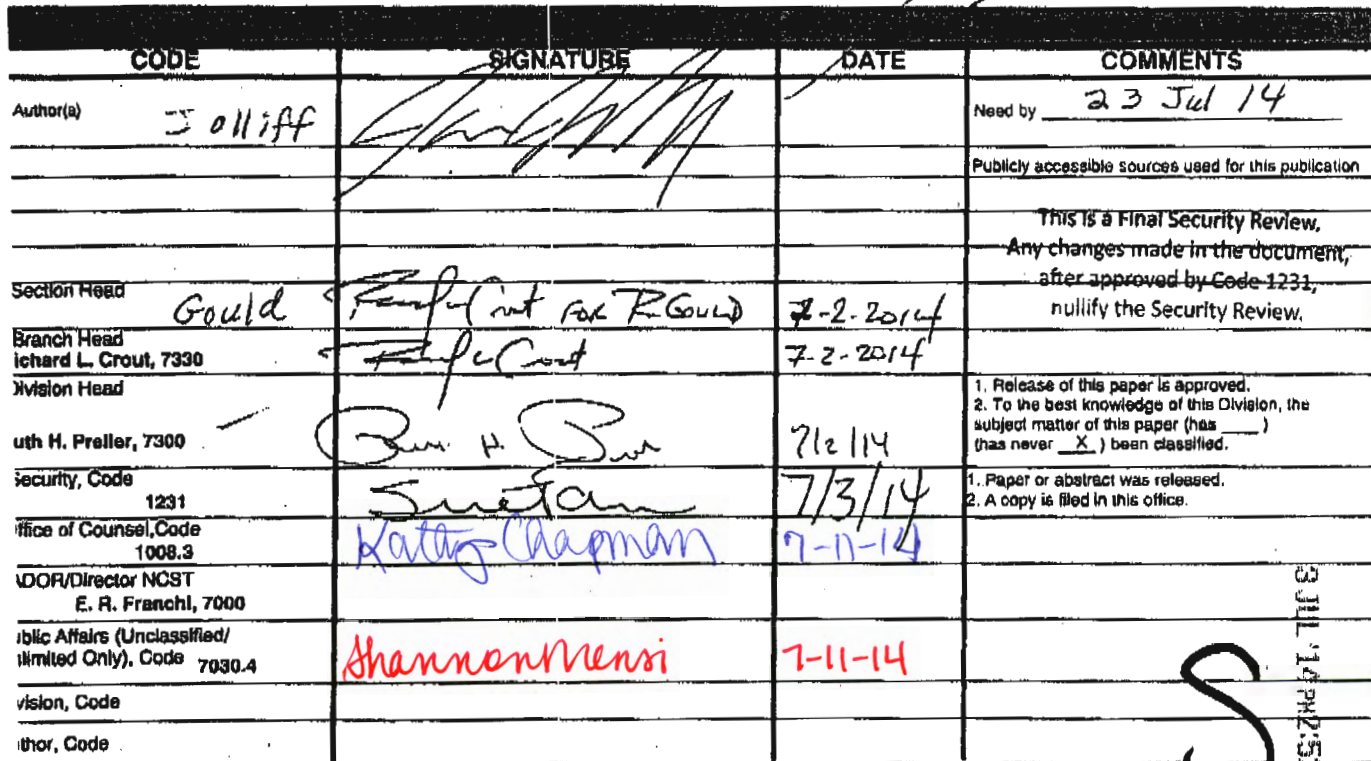 CODE SIGNATURE DATE COMMENTS
Author(s) Jolliff Need by 23 Jul 14
Publicly accessible sources used for this publication
This is a Final Security Review.
Any changes made in the document,
after approved by Code 1231,
nullify the Security Review.
Section Head
Gould FOR R Gould 7-2-2014
Branch Head
ichard L. Crout, 7330 7-2-2014
ivision Head
uth H. Preller, 7300 7/2/14
1. Release of this paper is approved.
2. To the best knowledge of this Division, the
subject matter of this paper (has ____ )
(has never X ) been classified.
ecurity, Code
1231 7/3/14
1. Paper or abstract was released.
2. A copy is filed in this office.
ffice of Counsel,Code
1008.3 Kathy Chapman 7-11-14
ADOR/Director NCST
E. R. Franchi, 7000
ublic Affairs (Unclassified/
nlimited Only), Code 7030.4 Shannon Mensi 7-11-14
vision, Code
thor, Code
3 JUL '14 PM2:5